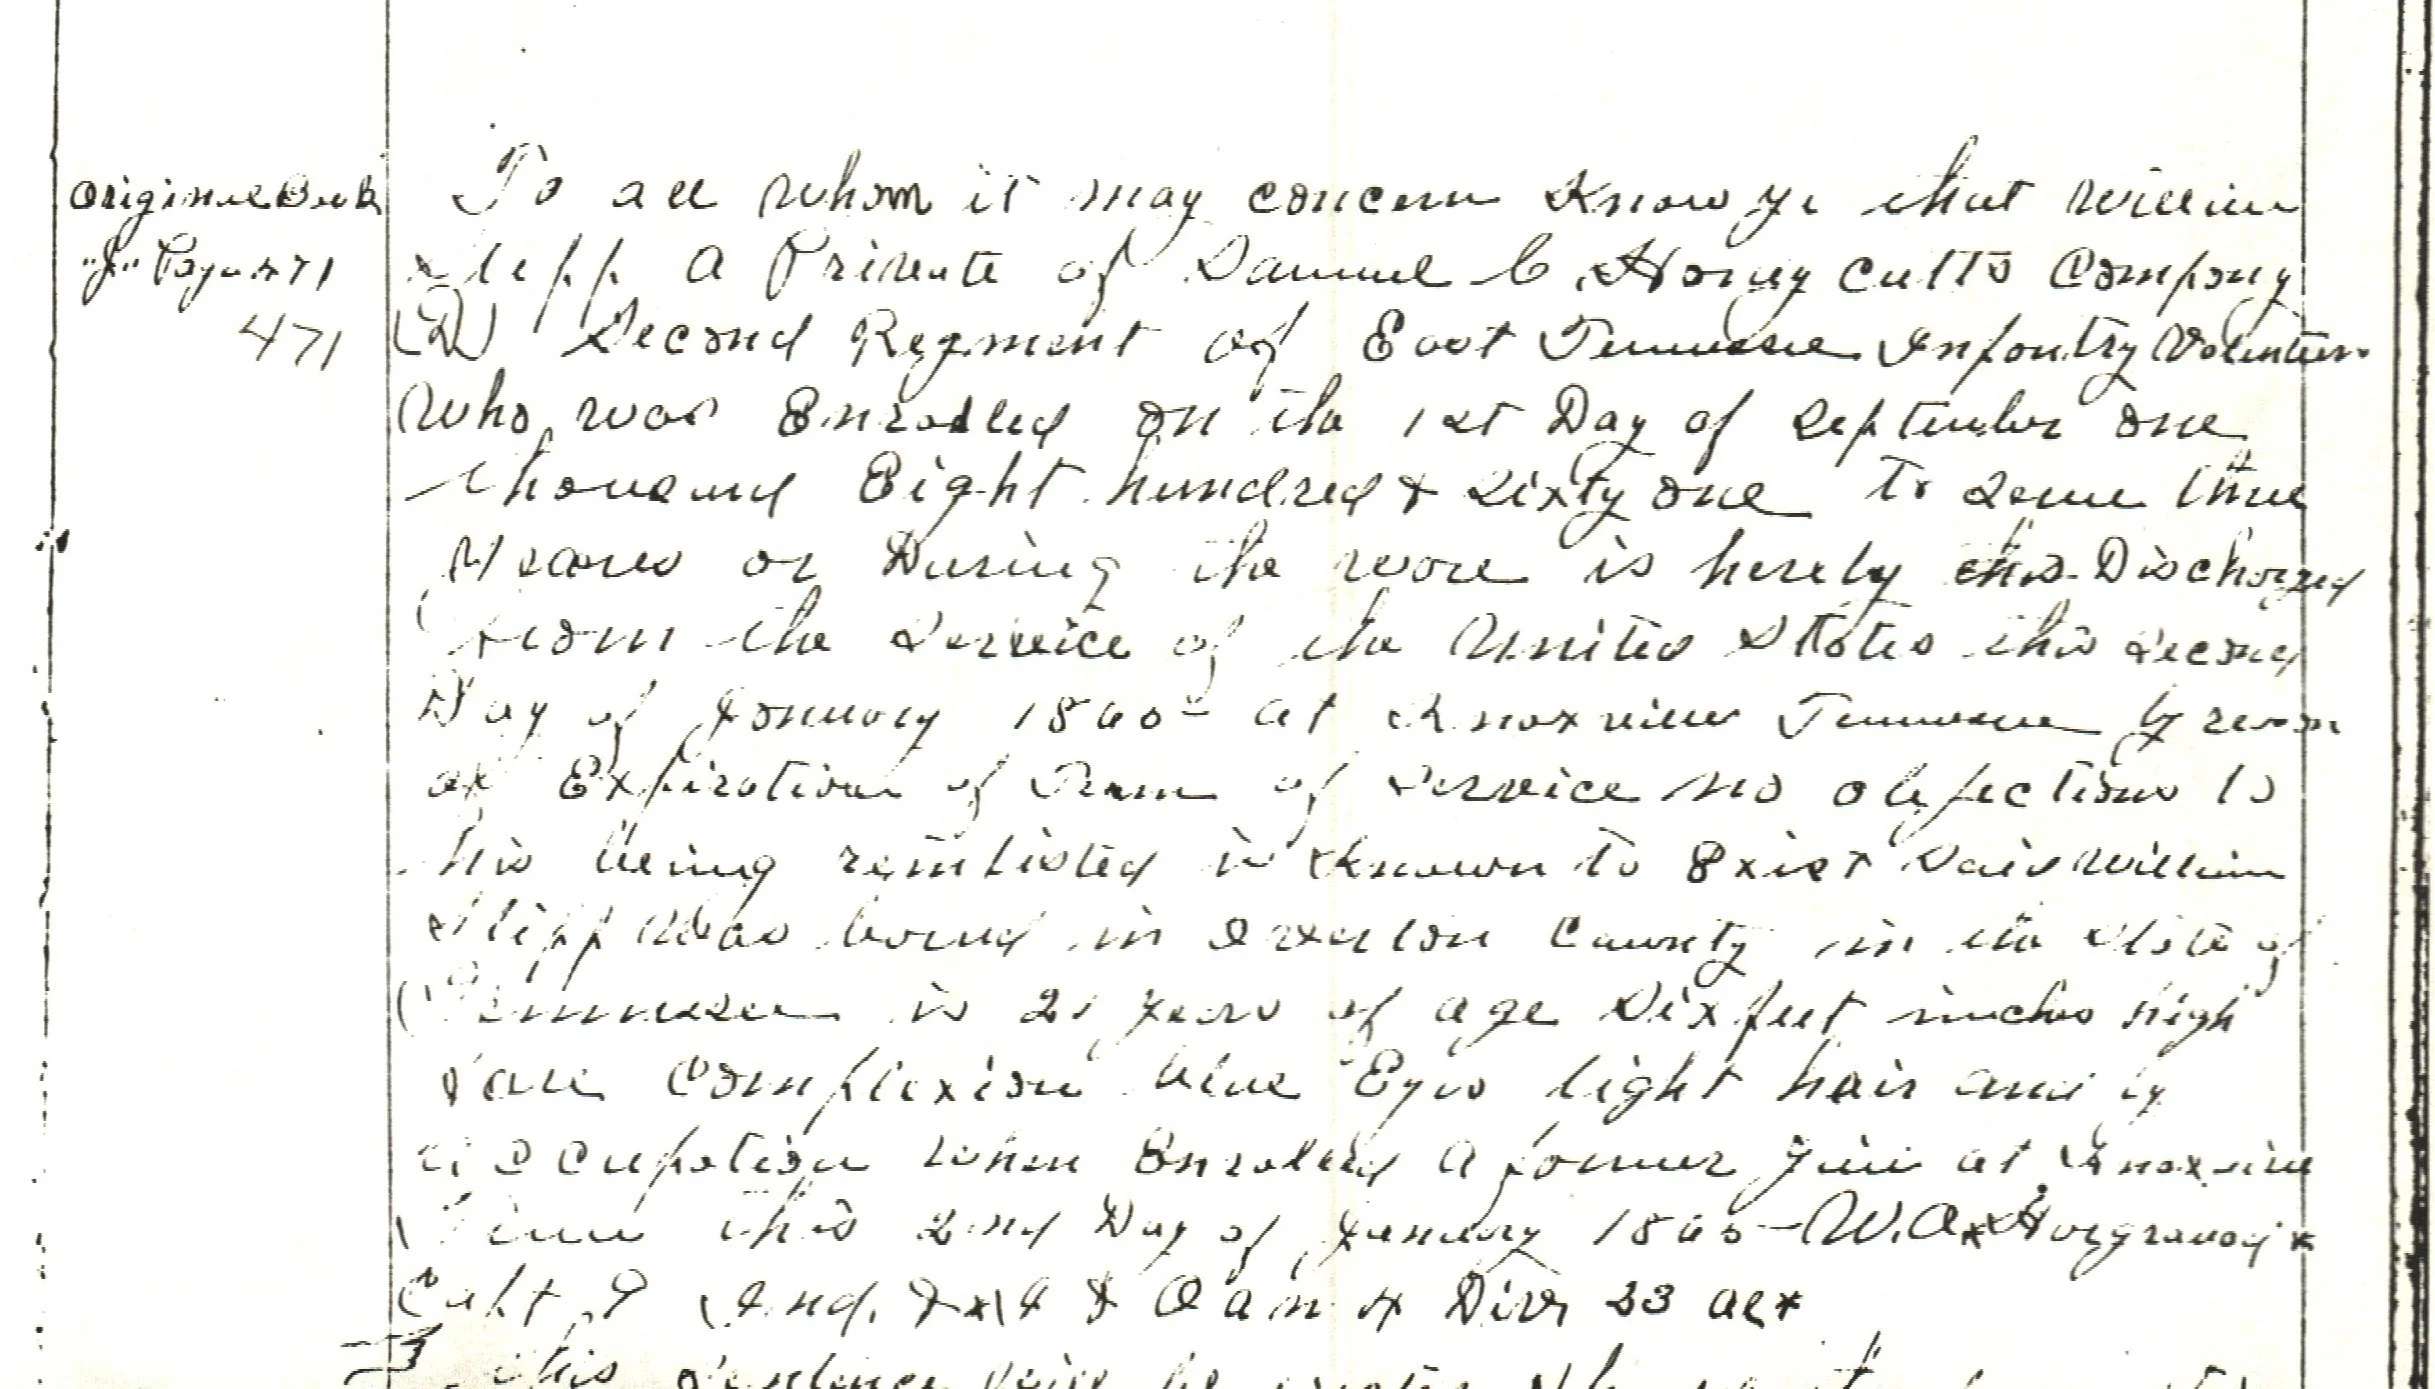 Original Book
"J" Page 471
471
To all whom it may concern Know ye that William
Slipp A Private of Samuel C Honey cutts Company
(D) Second Regment of East Tennessee Infantry Volunteers
Who was Enrolled on the 1st Day of September one
thousand Eight hundred & sixty one to serve three
Years or During the war is hereby this Discharged
from the Service of the United States this Second
Day of January 1865 at Knoxville Tennessee by reason
of Expiration of Term of Service no objections to
his being reinlisted is known to Exist Said William
Slipp Was bornd in Overton County in the State of
Tennessee is 21 years of age Six feet inches high
Fare Complexion blue Eyes light hair and by
occupation when Enrolled a farmer Given at Knoxville
Tenn this 2nd Day of January 1865 W. A. Hargraved
Capt Ind. Div 23 ac
this Sentence will be